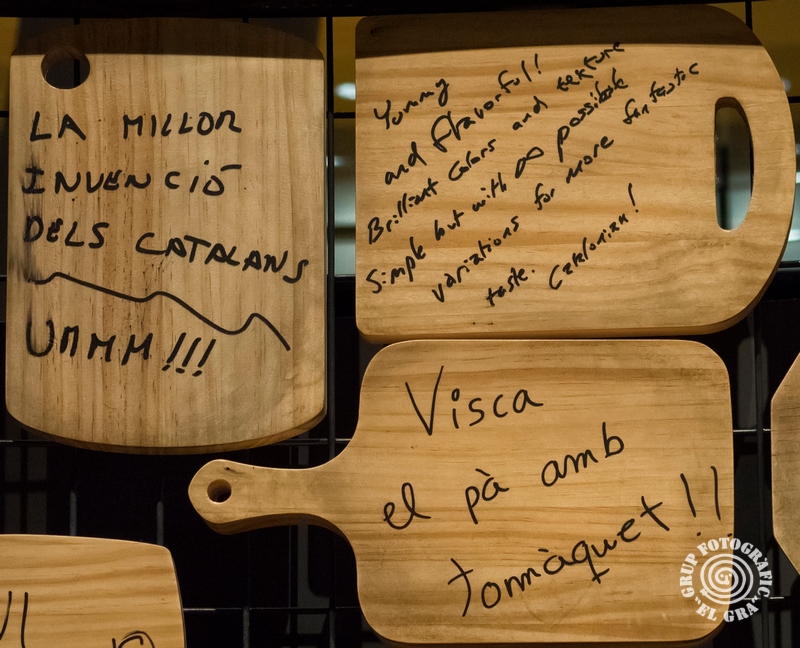 LA MILLOR
INVENCIÓ
DELS CATALANS
UMMM!!!
Yummy
and flavorful!
Brilliant Colors and texture
Simple but with ∞ possible
variations for more fantastic
taste. Catalonian!
Visca
el pà amb
tomàquet!!
GRUP FOTOGRÀFIC
"EL GRA"